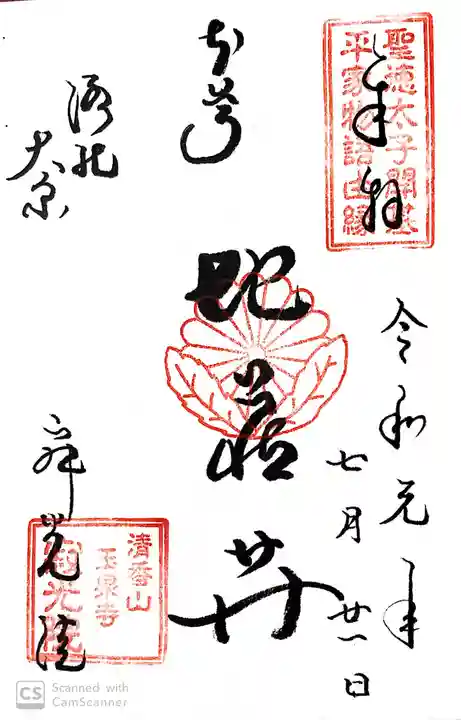 奉拝
聖徳太子開基
平家物語由縁
令和元年
七月廿一日
本尊
地蔵尊
洛北
大原
寂光院
清香山
玉泉寺
寂光院
CS Scanned with
CamScanner